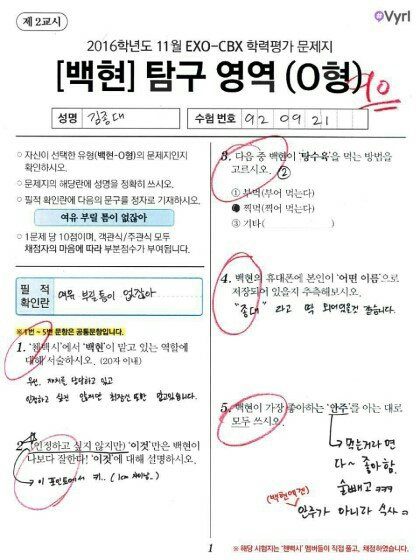 제 2교시
Vyrl
2016학년도 11월 EXO-CBX 학력평가 문제지
[백현] 탐구 영역 (O형)
성명 김종대 수험 번호 92 09 21
○ 자신이 선택한 유형(백현-O형)의 문제지인지
확인하시오.
○ 문제지의 해당란에 성명을 정확히 쓰시오.
○ 필적 확인란에 다음의 문구를 정자로 기재하시오.
여유 부릴 틈이 없잖아
○ 1문제 당 10점이며, 객관식/주관식 모두
채점자의 마음에 따라 부분점수가 부여됩니다.
필 적
확인란
여유 부릴 틈이 없잖아
※1번 ~ 5번 문항은 공통문항입니다.
1. '첸백시'에서 '백현'이 맡고 있는 역할에
대해 서술하시오. (20자 이내)
우선, 재치를 담당하고 있고
인정하고 싶진 않지만 최강신 또한 맡고있습니다.
2. (인정하고 싶지 않지만) '이것'만은 백현이
나보다 잘한다! '이것'에 대해 설명하시오.
이 포인트에서 키.. (1cm 차이남..)
3. 다음 중 백현이 '탕수육'을 먹는 방법을
고르시오. ②
① 부먹(부어 먹는다)
② 찍먹(찍어 먹는다)
③ 기타( )
4. 백현의 휴대폰에 본인이 '어떤 이름'으로
저장되어 있을지 추측해보시오.
"종대" 라고 딱 되어있을것 같습니다.
5. 백현이 가장 좋아하는 '안주'를 아는 대로
모두 쓰시오.
먹는거라면
다~ 좋아함.
술빼고 ㅋㅋㅋ
(백현에겐)
안주가 아니라 식사
1
※ 해당 시험지는 '첸백시' 멤버들이 직접 풀고, 채점하였습니다.